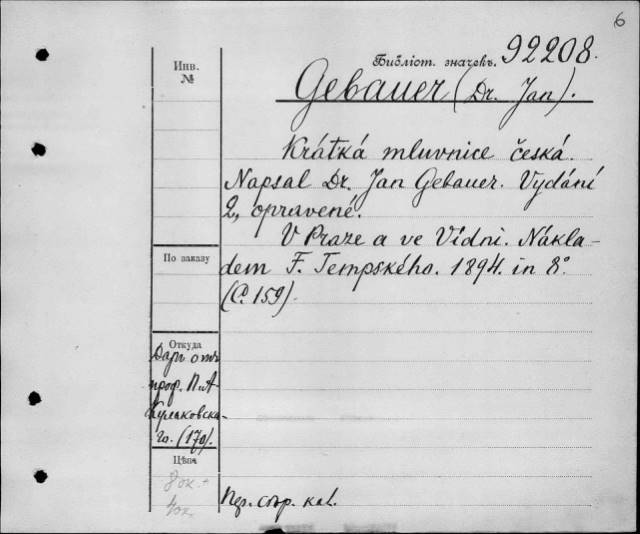 6
Библіот. значекъ. 92208.
Инв.
№
Gebauer (Dr. Jan).
Krátká mluvnice česká.
Napsal Dr. Jan Gebauer. Vydání
2, opravené.
V Praze a ve Vídni. Nákla-
dem F. Tempského. 1894. in 8°
(C. 159).
По заказу
Откуда
Даръ отъ
проф. П. А
Кулаковска-
го. (170).
Цѣна